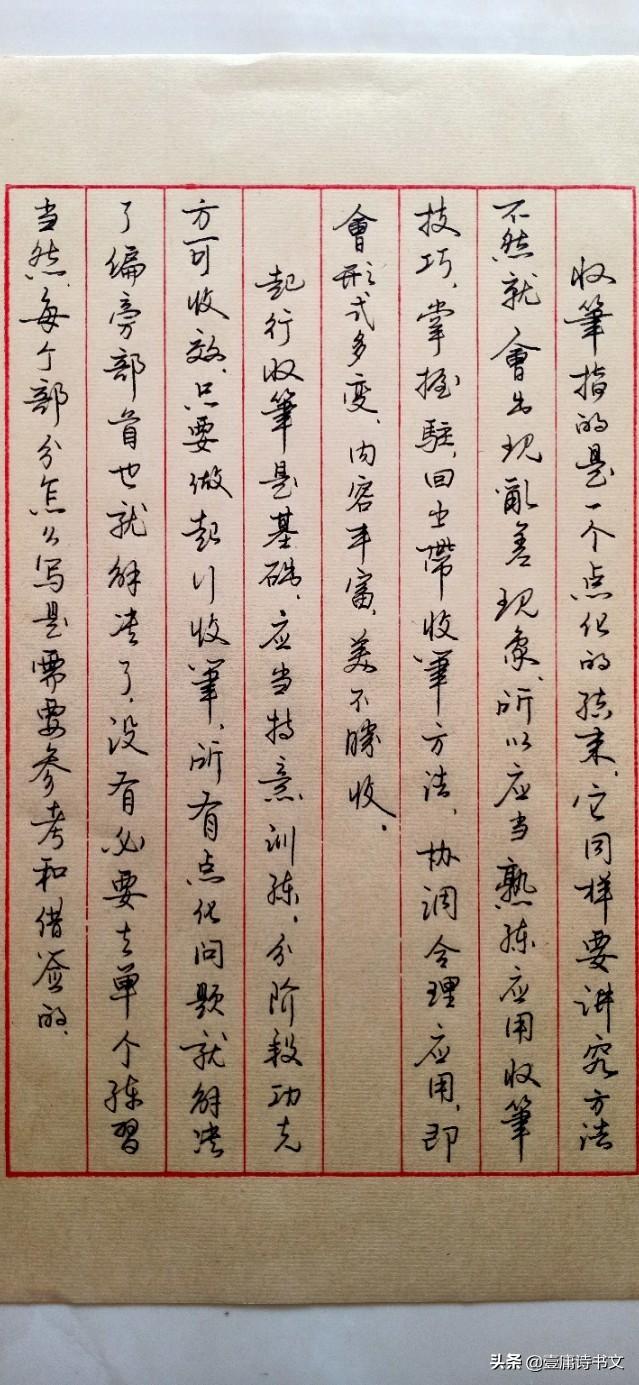 收筆指的是一个点化的结束，它同样要讲究方法
不然就會出现亂差现象，所以应当熟练应用收筆
技巧，掌握駐、回、出、帶收筆方法，协调合理应用，即
會形式多变，内容丰富，美不勝收。
起行收筆是基础，应当特意训练，分阶段功克
方可收效，只要做起行收筆，所有点化问题就解决
了，偏旁部首也就解决了，没有必要去单个练習
当然，每个部分怎么写是需要参考和借鉴的，
头条 @壹庸诗书文